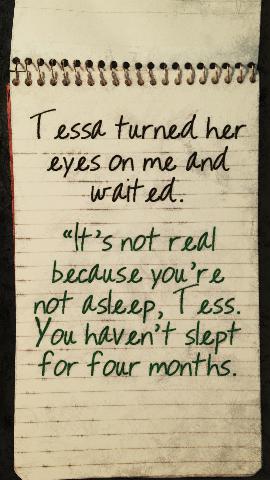 Tessa turned her
eyes on me and
waited.
“It's not real
because you're
not asleep, Tess.
You haven't slept
for four months.